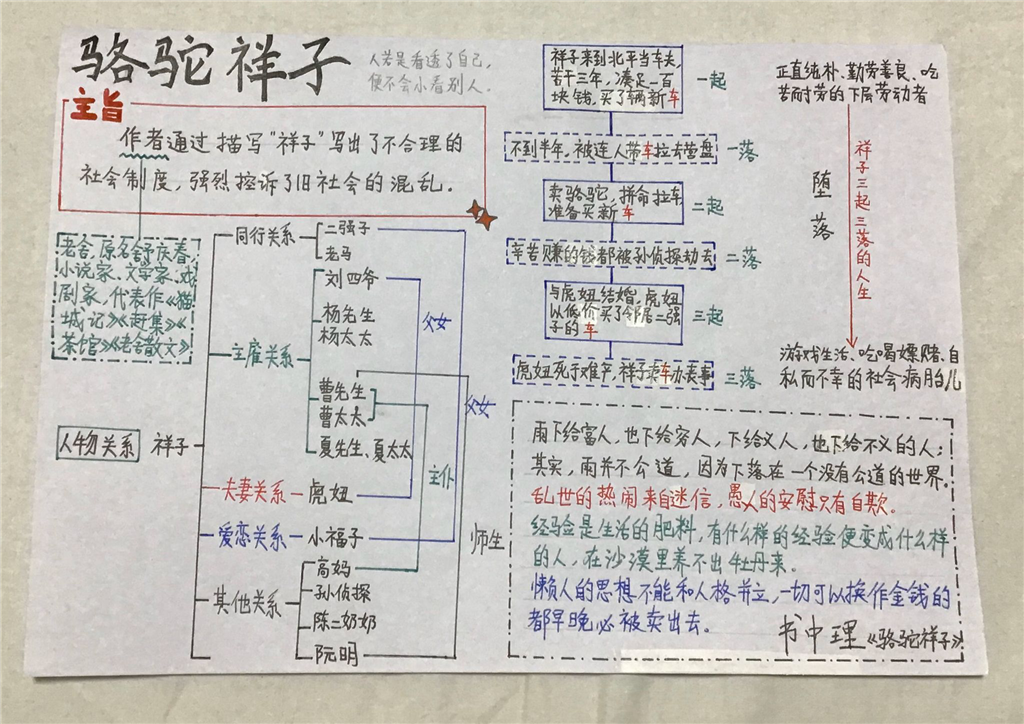 骆驼祥子
人若是看透了自己，
便不会小看别人.
主旨
作者通过描写"祥子"写出了不合理的
社会制度，强烈控诉了旧社会的混乱.
老舍,原名舒庆春,
小说家、文学家、戏
剧家,代表作《猫
城记》《赶集》《
茶馆》《老舍散文》
人物关系
祥子
同行关系
二强子
老马
主雇关系
刘四爷
杨先生
杨太太
曹先生
曹太太
夏先生、夏太太
夫妻关系
虎妞
爱恋关系
小福子
其他关系
高妈
孙侦探
陈二奶奶
阮明
父女
父女
主仆
师生
祥子来到北平当车夫,
苦干三年,凑足一百
块钱,买了辆新车
一起
不到半年,被连人带车拉去营盘
一落
卖骆驼,拼命拉车,
准备买新车
二起
辛苦赚的钱都被孙侦探劫去
二落
与虎妞结婚,虎妞
以低价买了邻居二强
子的车
三起
虎妞死于难产,祥子卖车办丧事
三落
正直纯朴、勤劳善良、吃
苦而耐劳的下层劳动者
堕落
祥子三起三落的人生
游戏生活、吃喝嫖赌、自
私而不幸的社会病胎儿
雨下给富人,也下给穷人,下给义人,也下给不义的人;
其实,雨并不公道,因为下落在一个没有公道的世界.
乱世的热闹来自迷信,愚人的安慰只有自欺.
经验是生活的肥料,有什么样的经验便变成什么样
的人,在沙漠里养不出牡丹来.
懒人的思想不能和人格并立,一切可以换作金钱的
都早晚必被卖出去。
书中理《骆驼祥子》